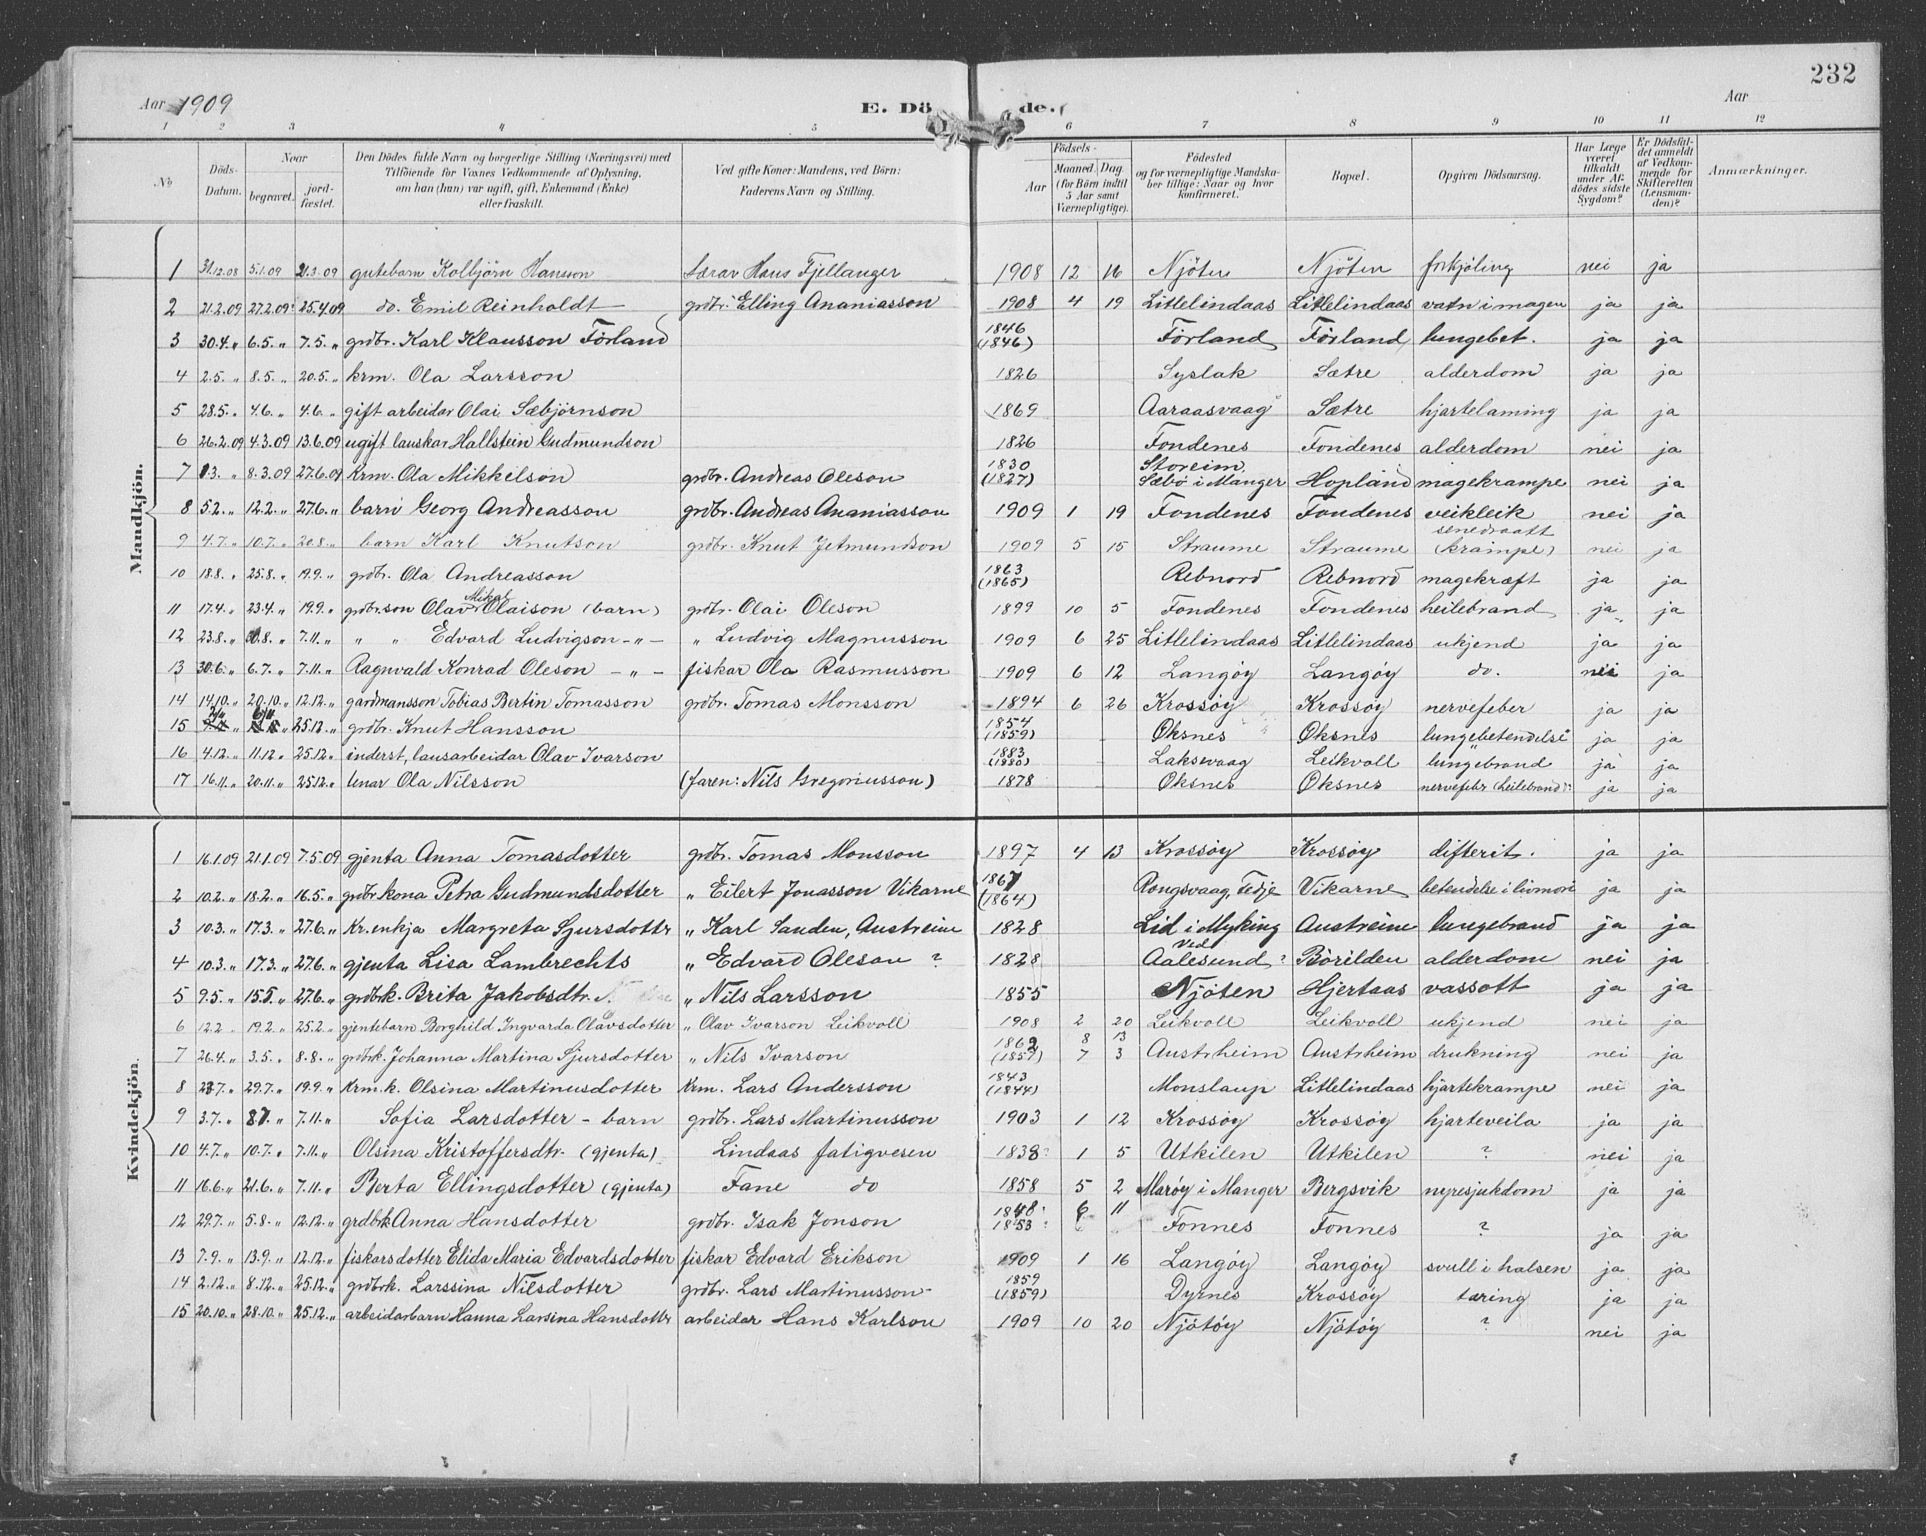 232
Aar 1909 E. Dö de. Aar
1 2 3 4 5 6 7 8 9 10 11 12
No
Döds-Datum.
Naar
begravet.
jord-fæstet.
Den Dödes fulde Navn og borgerlige Stilling (Næringsvei) med
Tilföiende for Voxnes Vedkommende af Oplysning,
om han (hun) var ugift, gift, Enkemand (Enke)
eller fraskilt.
Ved gifte Koner: Mandens, ved Börn:
Faderens Navn og Stilling.
Födsels-
Aar
Maaned Dag
(for Börn indtil
5 Aar samt
Værnepligtige).
Födested
og for værnepligtige Mandska-
ber tillige: Naar og hvor
konfirmeret.
Bopæl.
Opgiven Dödsaarsag.
Har Læge
været
tilkaldt
under Af-
dödes sidste
Sygdom?
Er Dödsfal-
det anmeldt
af Vedkom-
mende for
Skifteretten
(Lensman-
den)?
Anmærkninger.
Mandkjön.
1 31.12.08 5.1.09 21.3.09 gutebarn Kolbjörn Hansson Lærar Hans Fjellanger 1908 12 16 Njöten Njöten forkjöling nei ja
2 21.2.09 27.2.09 25.4.09 do. Emil Reinholdt grdbr. Elling Ananiasson 1908 4 19 Litlelindaas Litlelindaas vatn i magen ja ja
3 30.4. " 6.5. " 7.5. " grdbr. Karl Klausson Förland 1846 (1846) Förland Förland lungebet. ja ja
4 2.5. " 8.5. " 20.5. " krm. Ola Larsson 1826 Syslak Sætre alderdom ja ja
5 28.5. " 4.6. " 4.6. " gift arbeidar Olai Sæbjörnson 1869 Aaraasvaag Sætre hjartelaming ja ja
6 26.2.09 4.3.09 13.6.09 ugift lauskar Hallstein Gudmundson 1826 Fondenes Fondenes alderdom nei ja
7 3. " 8.3.09 27.6.09 Krm. Ola Mikkelson grdbr. Andreas Oleson 1830 (1827) Storeim. Sæbö i Manger Hopland magekrampe nei ja
8 5.2. " 12.2. " 27.6. " barn Georg Andreasson grdbr. Andreas Ananiasson 1909 1 19 Fondenes Fondenes veikleik nei ja
9 4.7. " 10.7. " 20.8. " barn Karl Knutson grdbr. Knut Jetmundson 1909 5 15 Straume Straume senedraatt (krampe) nei ja
10 18.8. " 25.8. " 19.9. " grdbr. Ola Andreasson 1863 (1865) Rebnord Rebnord magekræft ja ja
11 17.4. " 23.4. " 19.9. " grdbr.son Olav Mikal Olaison (barn) grdbr. Olai Oleson 1899 10 5 Fondenes Fondenes heilebrand ja ja
12 23.8. " 30.8. " 7.11. " " " Edvard Ludvigson - " - " Ludvig Magnusson 1909 6 25 Litlelindaas Litlelindaas ukjend ja ja
13 30.6. " 6.7. " 7.11. " Ragnvald Konrad Oleson - " - fiskar Ola Rasmusson 1909 6 12 Langöy Langöy do. nei ja
14 14.10. " 20.10. " 12.12. " gardmansson Tobias Bertin Tomasson grdbr. Tomas Monsson 1894 6 26 Krossöy Krossöy nervefeber ja ja
15 " " 25.12. " grdbr. Knut Hansson 1854 (1859) Øksnes Øksnes lungebetendelse ja ja
16 4.12. " 11.12. " 25.12. " inderst, lausarbeidar Olav Ivarson 1883 (1880) Laksevaag Leikvoll lungebrand ja ja
17 16.11. " 20.11. " 25.12. " unar Ola Nilsson (faren: Nils Gregoriusson) 1878 Øksnes Øksnes nervefebr (heilebrand)? ja ja
Kvindekjön.
1 16.1.09 21.1.09 7.5.09 gjenta Anna Tomasdotter grdbr. Tomas Monsson 1897 4 13 Krossöy Krossöy difterit. ja ja
2 10.2. " 18.2. " 16.5. " grdbrkona Petra Gudmundsdotter " Eilert Jonasson Vikarne 1867 (1864) Rongsvaag, Fedje Vikarne betendelse i livmori ja ja
3 10.3. " 17.3. " 27.6. " Kr.enkja Margreta Sjursdottr " Karl Sanden, Austreim 1828 Lid i Myking Austreim lungebrand ja ja
4 10.3. " 17.3. " 27.6. " gjenta Lisa Lambrechts " Edvard Oleson ? 1828 Ved Aalesund ? Börilden alderdom nei ja
5 9.5. " 15.5. " 27.6. " grdbrk. Brita Jakobsdtr. " Nils Larsson 1855 Njöten Hjertaas vassott ja ja
6 12.2. " 19.2. " 25.2. " gjentebarn Borghild Ingvarda Olavsdotter " Olav Ivarson Leikvoll 1908 2 20 Leikvoll Leikvoll ukjend nei ja
7 26.4. " 3.5. " 8.8. " grdbrk. Johanna Martina Sjursdotter " Nils Ivarson 1862 8 13 (1857) 7 3 Austrheim Austrheim drukning nei ja
8 23.7. " 29.7. " 19.9. " Krm.k. Olsina Martinusdotter Krm. Lars Andersson 1843 (1844) Monslaup Litlelindaas hjartekrampe nei ja
9 3.7. " 8.7. " 7.11. " Sofia Larsdotter - barn grdbr. Lars Martinusson 1903 1 12 Krossöy Krossöy hjarteveila ja ja
10 4.7. " 10.7. " 7.11. " Olsina Kristoffersdtr. (gjenta) Lindaas fatigvesen 1838 1 5 Utkilen Utkilen ? nei ja
11 16.6. " 21.6. " 7.11. " Berta Ellingsdotter (gjenta) Fane do 1858 5 2 Maröy i Manger Bergsvik nyresjukdom ja ja
12 29.7. " 5.8. " 12.12. " grdbrk Anna Hansdotter grdbr. Isak Jonson 1848 6 11 1853 ? Fonnes Fonnes ? ja ja
13 7.9. " 13.9. " 12.12. " fiskarsdotter Elida Maria Edvardsdotter fiskar Edvard Erikson 1909 1 16 Langöy Langöy svull i halsen ja ja
14 2.12. " 8.12. " 25.12. " grdbrk. Larssina Nilsdotter grdbr. Lars Martinusson 1859 (1859) Dyrnes Krossöy tæring ja ja
15 20.10. " 28.10. " 25.12. " arbeidarbarn Hanna Larsina Hansdottr arbeidar Hans Karlson 1909 10 20 Njötöy Njötöy ? nei ja